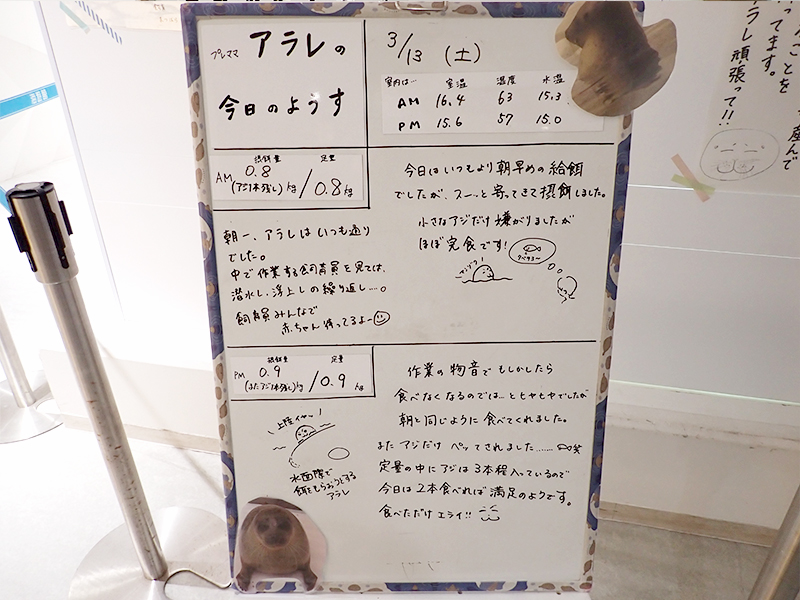 プレママ アラレの
今日のようす
3/13 (土)
室内は… 室温 湿度 水温
AM 16.4 63 15.3
PM 15.6 57 15.0
摂餌量 定量
AM 0.8 kg / 0.8 kg
(アジ1本残し)
今日はいつもより朝早めの給餌
でしたが、スーッと寄ってきて摂餌しました。
小さなアジだけ嫌がりましたが
ほぼ完食です!
朝一、アラレはいつも通り
でした。
中で作業する飼育員を見ては、
潜水し、浮上しの繰り返し…。
飼育員みんなで
赤ちゃん待ってるよー
摂餌量 定量
PM 0.9 kg / 0.9 kg
(またアジ1本残し)
作業の物音でもしかしたら
食べなくなるのでは…ともやもやでしたが
朝と同じように食べてくれました。
またアジだけ ペッてされました……. 笑
定量の中にアジは3本程入っているので
今日は2本食べれば満足のようです。
食べただけエライ!!
水面際で
餌をもらおうとする
アラレ
ことを
ってます。
産んで
ラレ頑張って!!